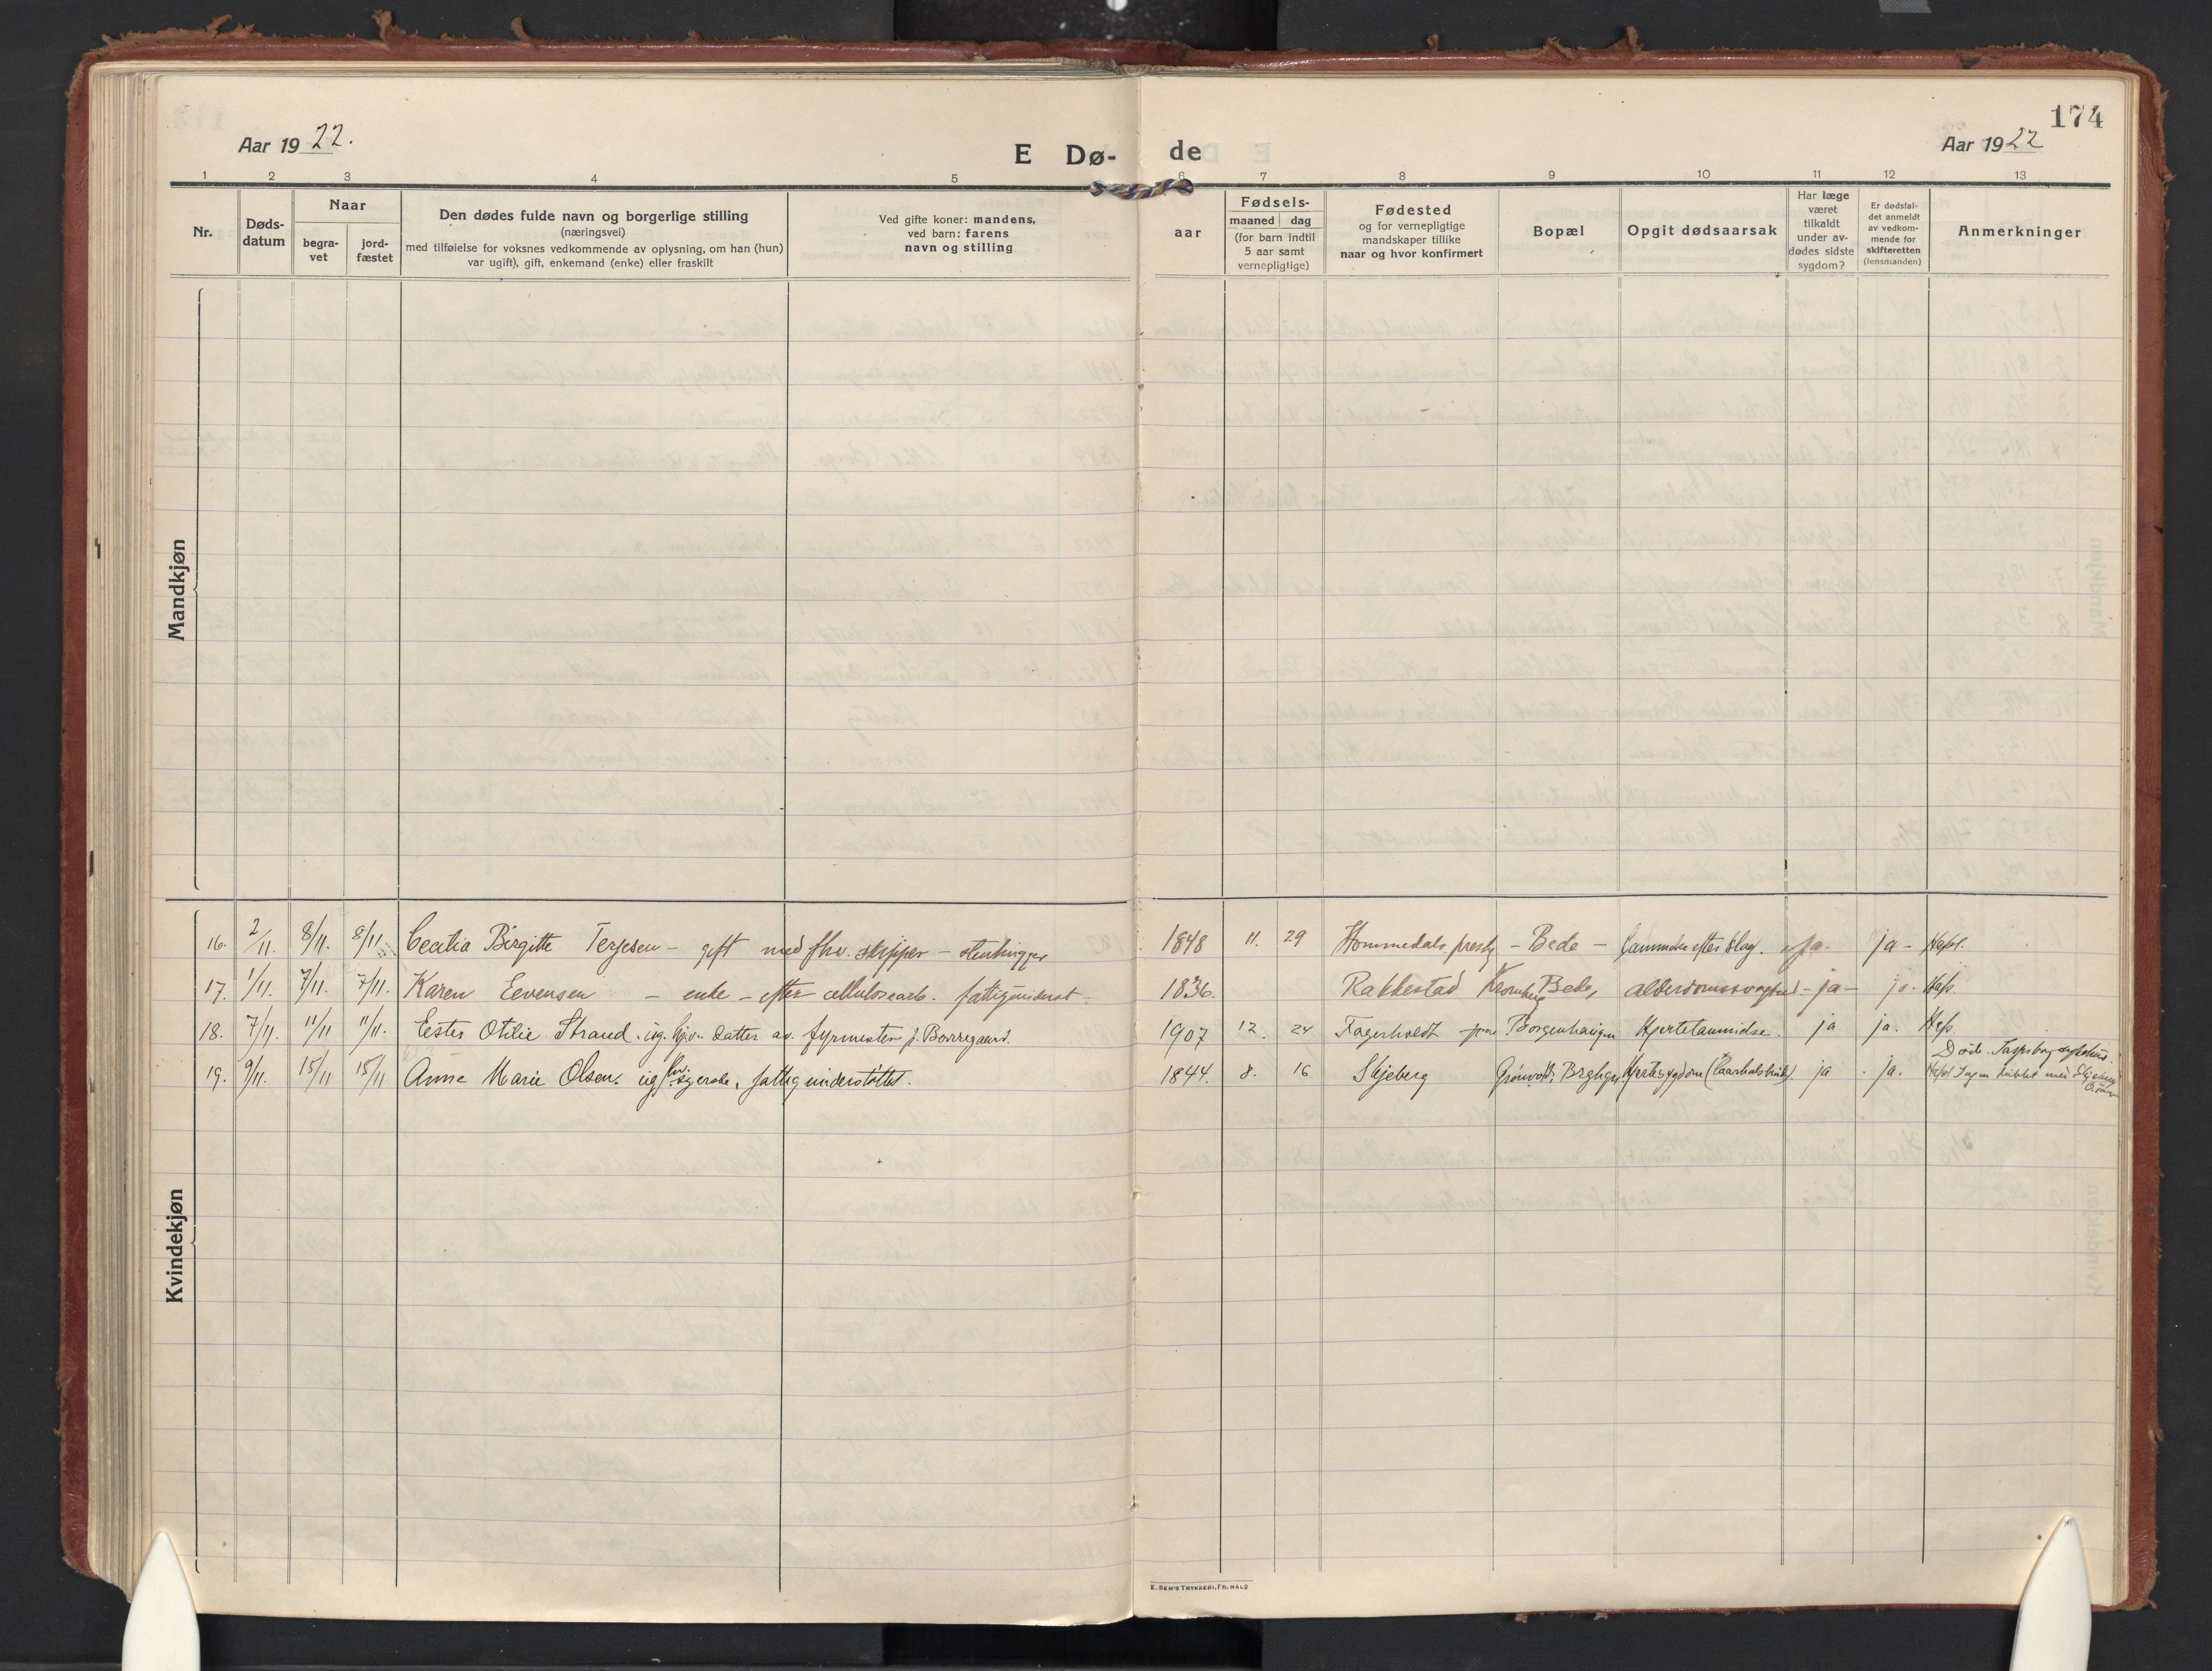 174
Aar 1922.
E Dø- de
Aar 1922
1 2 3 4 5 6 7 8 9 10 11 12 13
Nr.
Døds-
datum
Naar
begra-
vet
jord-
fæstet
Den dødes fulde navn og borgerlige stilling
(næringsvei)
med tilføielse for voksnes vedkommende av oplysning, om han (hun)
var ugift), gift, enkemand (enke) eller fraskilt
Ved gifte koner: mandens,
ved barn: farens
navn og stilling
aar
Fødsels-
maaned dag
(for barn indtil
5 aar samt
vernepligtige)
Fødested
og for vernepligtige
mandskaper tillike
naar og hvor konfirmert
Bopæl
Opgit dødsaarsak
Har læge
været
tilkaldt
under av-
dødes sidste
sygdom?
Er dødsfal-
det anmeldt
av vedkom-
mende for
skifteretten
(lensmanden)
Anmerkninger
Mandkjøn
Kvindekjøn
16. 2/11. 8/11. 8/11 Cecilia Birgitte Terjesen - gift med fhv. skipper - stenhugger 1848 11. 29 Hommedals prestg - Bede - efter slag. ja. ja -
17. 1/11. 7/11. 7/11. Karen Evensen - enke - efter cellulosearb. fattigunderst. 1836. Rakkestad Bede, alderdomssvaghed - ja - ja.
18. 7/11. 11/11 11/11. Ester Otilie Strand. ug. hjv. datter av fyrmester p. Borregaard. 1907 12. 24 Fagerholdt Borgenhaugen Hjertelammelse. ja ja.
19. 9/11. 15/11 15/11 Anne Marie Olsen. ug. fhv. syerske, fattigunderstøttet. 1844. 8. 16 Skjeberg Hjertesygdom ja. ja. Døde
E. SEM'S TRYKKERI, FR.HALD